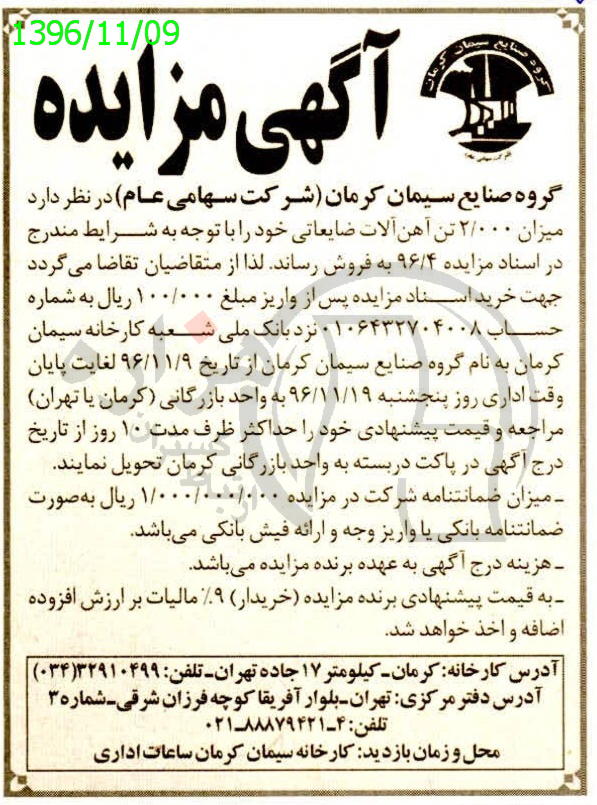 1396/11/09
گروه صنایع سیمان کرمان
شرکت سهامی عام
آگهی مزایده
گروه صنایع سیمان کرمان (شرکت سهامی عام) در نظر دارد
میزان ۲/۰۰۰ تن آهن‌آلات ضایعاتی خود را با توجه به شرایط مندرج
در اسناد مزایده ۹۶/۴ به فروش رساند. لذا از متقاضیان تقاضا می‌گردد
جهت خرید اسناد مزایده پس از واریز مبلغ ۱۰۰/۰۰۰ ریال به شماره
حساب ۰۱۰۶۴۳۲۷۰۴۰۰۸ نزد بانک ملی شعبه کارخانه سیمان
کرمان به نام گروه صنایع سیمان کرمان از تاریخ ۹۶/۱۱/۹ لغایت پایان
وقت اداری روز پنجشنبه ۹۶/۱۱/۱۹ به واحد بازرگانی (کرمان یا تهران)
مراجعه و قیمت پیشنهادی خود را حداکثر ظرف مدت ۱۰ روز از تاریخ
درج آگهی در پاکت دربسته به واحد بازرگانی کرمان تحویل نمایند.
ـ میزان ضمانتنامه شرکت در مزایده ۱/۰۰۰/۰۰۰/۰۰۰ ریال به‌صورت
ضمانتنامه بانکی یا واریز وجه و ارائه فیش بانکی می‌باشد.
ـ هزینه درج آگهی به عهده برنده مزایده می‌باشد.
ـ به قیمت پیشنهادی برنده مزایده (خریدار) ۹٪ مالیات بر ارزش افزوده
اضافه و اخذ خواهد شد.
آدرس کارخانه: کرمان ـ کیلومتر ۱۷ جاده تهران ـ تلفن: ۳۲۹۱۰۴۹۹(۰۳۴)
آدرس دفتر مرکزی: تهران ـ بلوار آفریقا کوچه فرزان شرقی ـ شماره ۳
تلفن: ۴ـ۸۸۸۷۹۴۲۱ـ۰۲۱
محل و زمان بازدید: کارخانه سیمان کرمان ساعات اداری